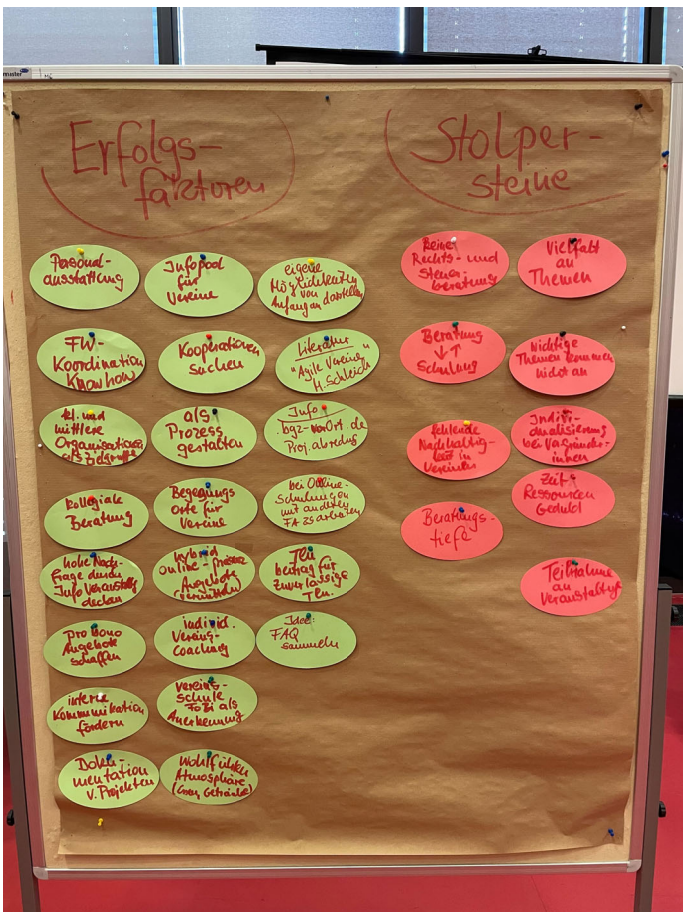 Erfolgs-
faktoren
Personal-
ausstattung
FW-
Koordination
KnowHow
kl. und
mittlere
Organisationen
als Zielgruppe
kollegiale
Beratung
hohe Nach-
frage durch
Info veranstaltg
decken
Pro bono
Angebote
schaffen
interne
Kommunikation
fördern
Doku-
mentation
v. Projekten
Infopool
für
Vereine
Kooperationen
suchen
als
Prozess
gestalten
Begegnungs
Orte für
Vereine
hybrid
Online-präsenz
Angebote
(vermitteln)
individ.
Vereins-
Coaching
Vereins-
schule
FoBi als
Anerkennung
Wohlfühlen
Atmosphäre
(Essen, Getränke)
eigene
Möglichkeiten
von
Anfang an darstellen
Literatur
"Agile Vereine"
M. Schleich
Info
bgz-vorOrt.de
Proj.abredung
bei Online-
Schulungen
mit anderen
FA zsarbeiten
TEN
beitrag für
zuverlässige
Ten.
Idee:
FAQ
sammeln
Stolper-
steine
keine
Rechts- und
steuer-
beratung
Beratung
↓↑
Schulung
fehlende
Nachhaltig-
keit in
Vereinen
Beratungs-
tiefe
Vielfalt
an
Themen
wichtige
Themen kommen
nicht an
Indivi-
dualisierung
bei VAgründer-
innen
Zeit-
Ressourcen
Geduld
Teilnahme
an
Veranstaltg